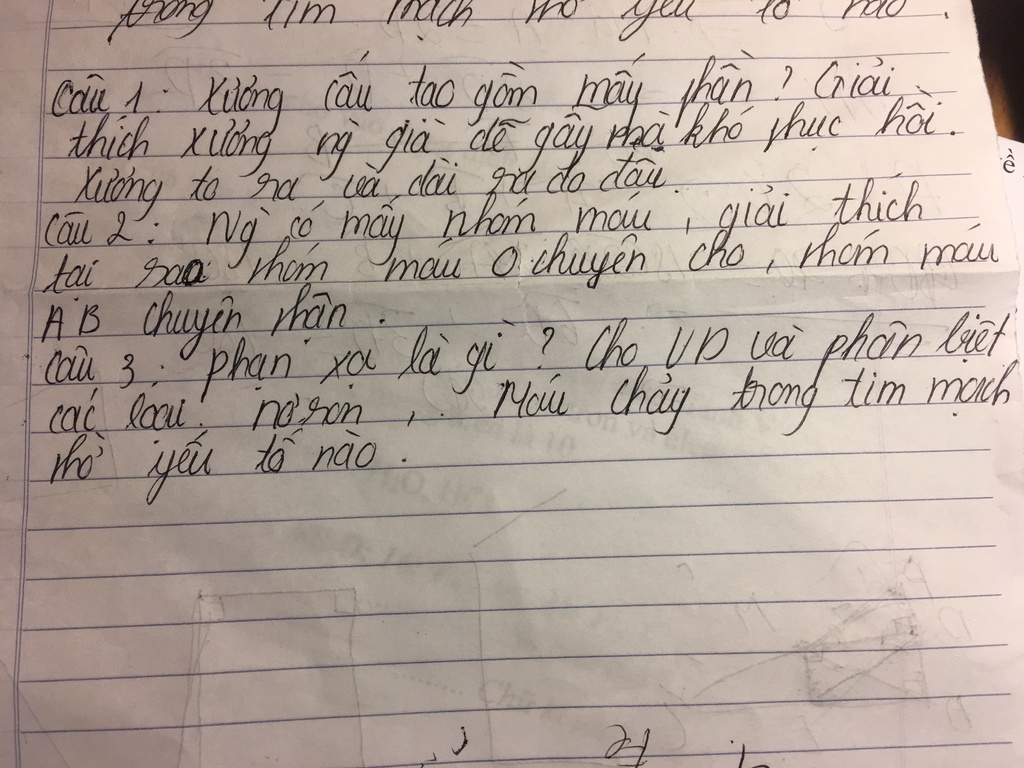 trong tim mạch nhờ yếu tố nào.
Câu 1: Xương cấu tạo gồm mấy phần? Giải
thích xương ng già dễ gãy mà khó phục hồi.
Xương to ra và dài ra do đâu.
Câu 2: Ng có mấy nhóm máu, giải thích
tại sao nhóm máu O chuyên cho, nhóm máu
AB chuyên nhận.
Câu 3: phản xạ là gì? Cho VD và phân biệt
các loại nơron, Máu chảy trong tim mạch
nhờ yếu tố nào.